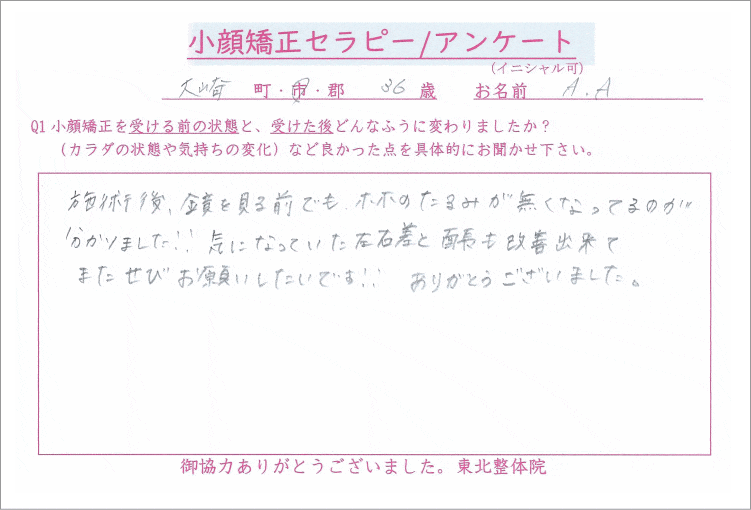 小顔矯正セラピー/アンケート
(イニシャル可)
大崎 町・市・郡 36 歳 お名前 A.A
Q1 小顔矯正を受ける前の状態と、受けた後どんなふうに変わりましたか？
（カラダの状態や気持ちの変化）など良かった点を具体的にお聞かせ下さい。
施術後、鏡を見る前でも、ホホのたるみが無くなってるのが
分かりました!! 気になっていた左右差と面長も改善出来て
またぜひお願いしたいです!! ありがとうございました。
御協力ありがとうございました。東北整体院